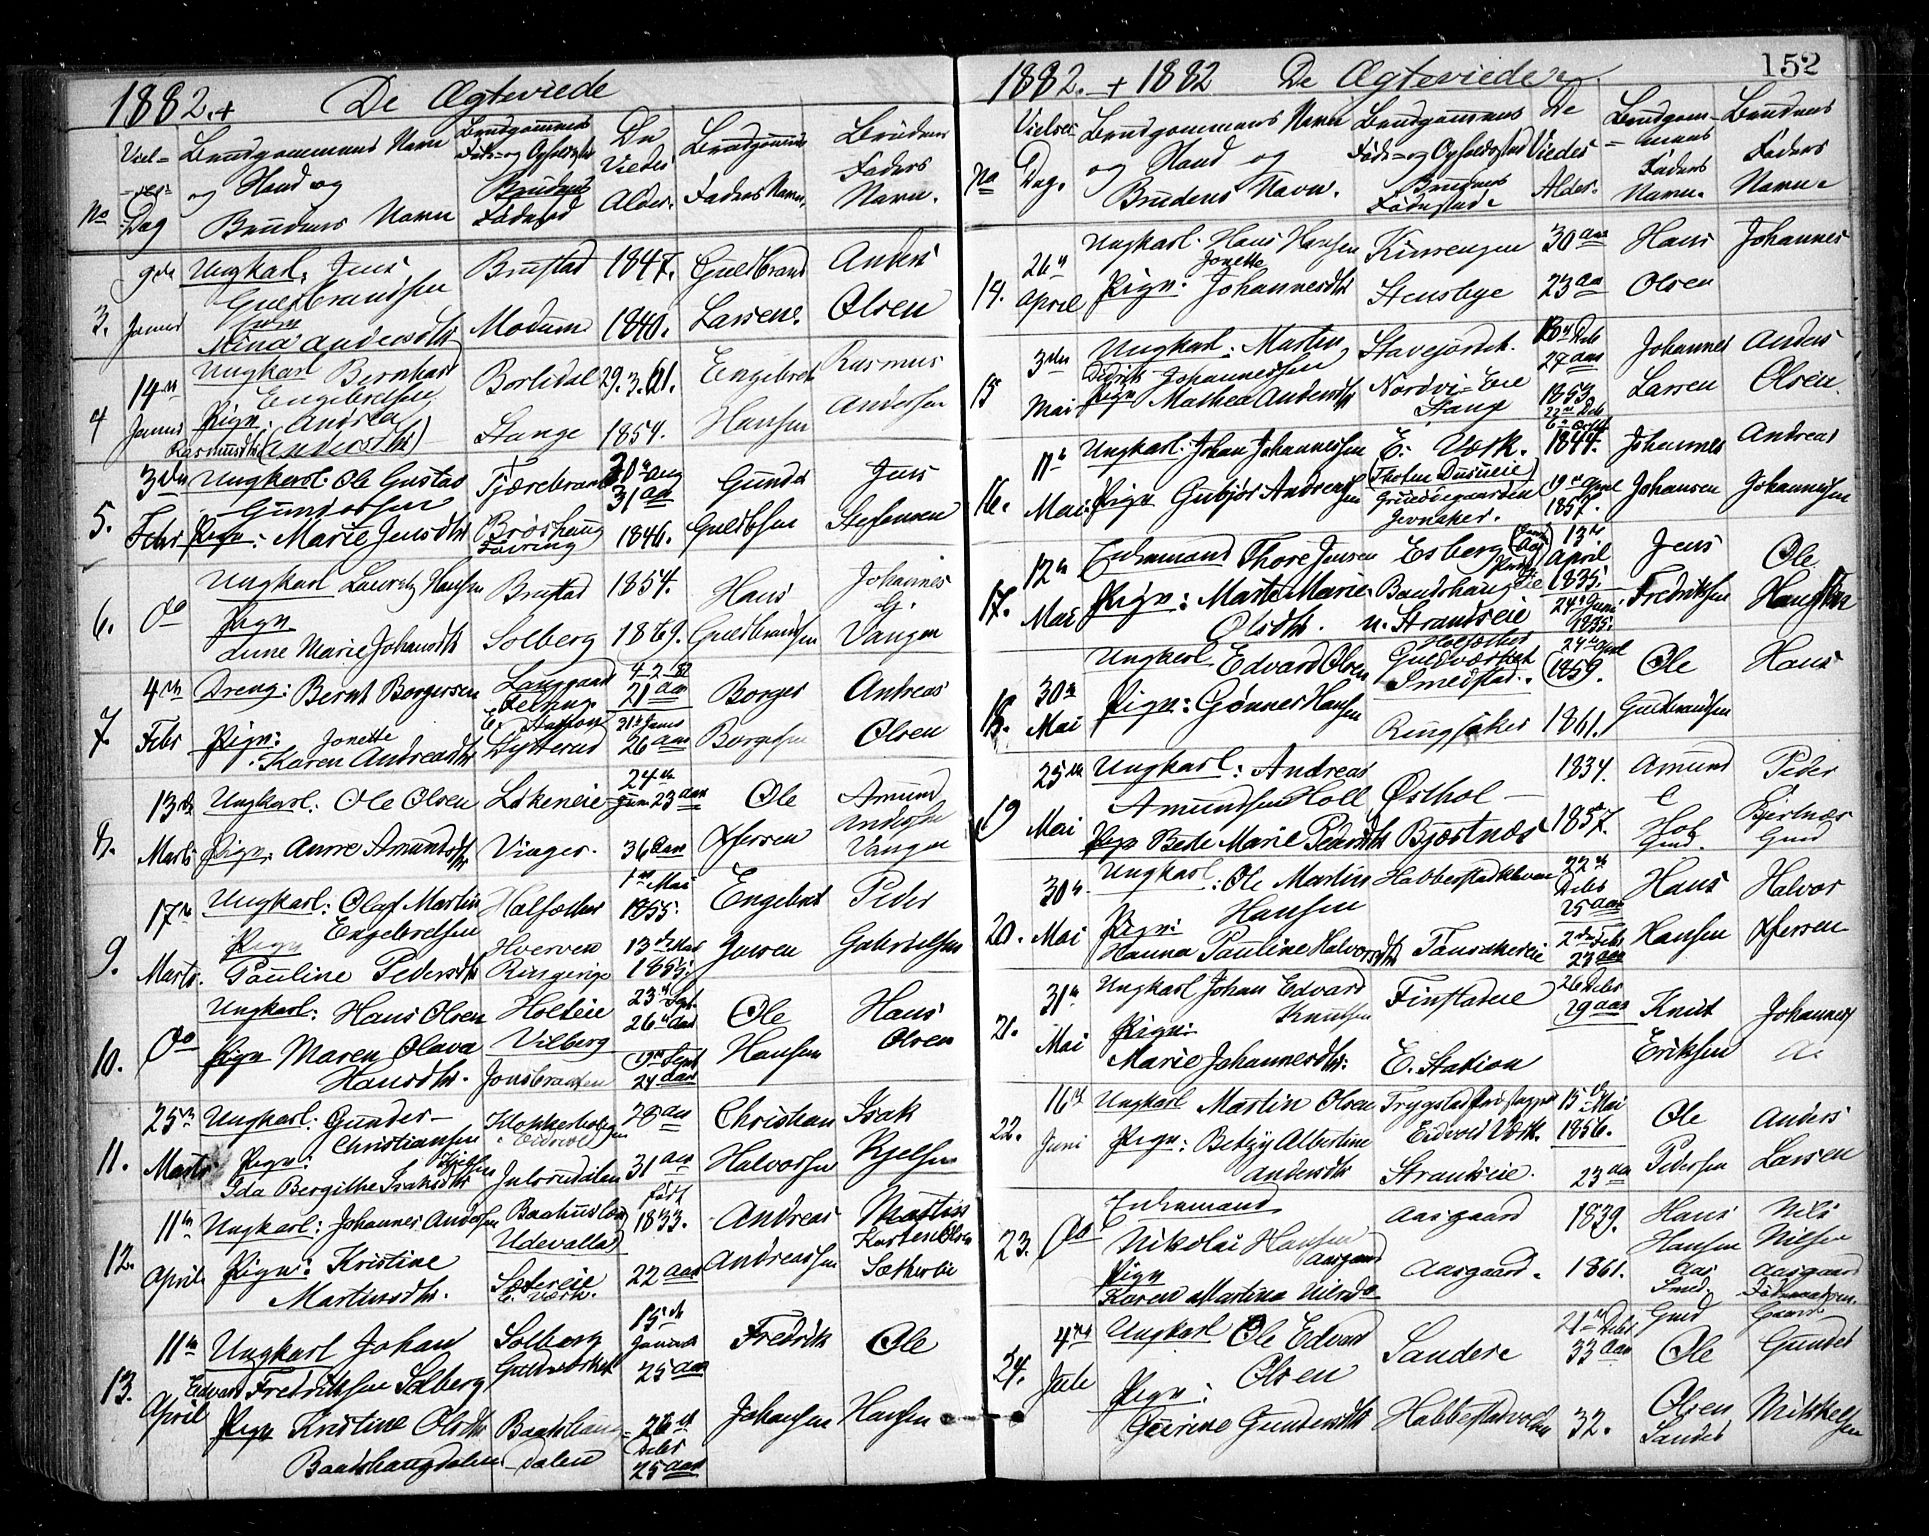 1882. + De Ægteviede
No
Viel-
ses-
Dag
Brudgommens Navn
og Stand og
Brudens Navn
Brudgommens
Føde- og Opholdsst
Brudens
Fødested
De
Viedes
Alder.
Brudgommens
Faders Navn.
Brudens
Faders
Navn.
3.
9de
Januar
Ungkarl. Jens
Guldbrandsen
Mina Andersdtr
Brustad
Modum
1847.
1840.
Guldbrand
Larsen.
Anders
Olsen
4
14de
Januar
Ungkarl Bernhard
Engebretsen
Pige. Andrea
Rasmusdtr (Andersdtr)
Borlidal
Stange
29.3.61.
1854.
Engebret
Hansen
Rasmus
Andersen
5.
3die
Febr
Ungkarl. Ole Gustav
Gundersen
Pige: Marie Jensdtr
Tjærebraat
Brøshaug
Feiring
30 Aug
31 aar
1846.
Gunder
Guldbsen
Jens
Steffensen
6.
Do
Ungkarl Lauritz Hansen
Pige
Line Marie Johansdtr
Brustad
Solberg
1854.
1869.
Hans
Guldbrandsen
Johannes
G.
Vangen
7.
4de
Febr
Dreng: Bernt Borgersen
Pige: Jonette
Karen Andreasdtr
Langgaard
Dytterud
4-2-
21 aar
31 Janr
26 aar
Borger
Borgersen
Andreas
Olsen
8.
13de
Marts
Ungkarl: Ole Olsen
Pige. Anne Amundsdtr
Løkeneie
Vinger.
24de
Juni 23 aar
36 aar
Ole
Iversen
Amund
Andersen
Vangen
9.
17de
Marts.
Ungkarl: Olaf Martin
Engebretsen
Pige
Pauline Pedersdtr
Halsæther
Hverven
Ringerige
1ste Mai
1855.
13de Mai
1855.
Engebret
Jensen
Peder
Gabrielsen
10.
Do
Ungkarl: Hans Olsen
Pige Maren Olava
Hansdtr.
Holteie
Vilberg
Jonsbraaten
23de Sept.
26 Aar
19de Sept
24 Aar
Ole
Hansen
Hans
Olsen
11.
25de
Marts
Ungkarl: Gunder
Christiansen
Pige: Kjelsen
Ida Bergithe Isaksdtr
Klokkerholmen
Eidsvold
Julsrudalen
28 aar
31 aar
Christian
Halvorsen
Isak
Kjelsen
12.
11te
April
Ungkarl: Johannes Andersen
Pige: Kristine
Martinsdtr.
Baahuslen
Udevalla
Sætereie
E. Værk.
født
1833.
22 Aar
Andreas
Andreassen
Mathias
Karstenolsen
Sætherbie
13.
11te
April
Ungkarl Johan
Edvard Fredriksen Solberg
Pige Kristine Olsdtr
Baadshaugdalen
Solberg
Guldværket
Baadshaug-
dalen
15de
Januar
25 aar
26de
Debr
25 Aar
Fredrik
Johansen
Ole
Hansen
152
1882. + 1882 De Ægteviede
No
Vielses
Dag.
Brudgommens Navn
og Stand og
Brudens Navn.
Brudgommens
Føde- og Opholdssted
Brudens
Fødested.
De
Viedes
Alder.
Brudgom-
mens
Faders
Navn.
Brudens
Faders
Navn.
14.
26de
April
Ungkarl. Hans Hansen
Jonette
Pige: Johannesdtr
Kinsengen
Stensbye
30 aar
23 aar
Hans
Olsen
Johannes
15
3die
Mai
Ungkarl: Martin
Didrik Johannessen
Pige Mathea Andersdtr
Stavejordet.
Nordvi-Eie
Stange
Debr
27 aar
1853
22de Debr
Johannes
Larsen
Anders
Olsen
16.
11te
Mai.
Ungkarl: Johan Johannessen
Pige Gubjør Andreasen
E: Værk.
Jevnaker.
1844.
19de April
1857.
Johannes
Johansen
Andreas
Johannessen
17.
12te
Mai
Enkemand Thore Jensen
Pige: Marte Marie
Olsdtr.
Esberg
Baadshaug
n. Strandeie
13de
April
1835.
24de Juni
1835.
Jens
Fredriksen
Ole
Haugen
18.
30te
Mai
Ungkarl Edvard Olsen
Pige: Gønner Hansen
Halsæther
Guldværket
Smedstad.
Ringsaker
24de April
1859.
1861.
Ole
Guldbrandsen
Hans
19
25de
Mai
Ungkarl: Andreas
Amundsen Holl
Pige Berte Marie Pedersdtr
Østhol
Bjørtnæs
1834.
1857.
Amund
Hol
Gmd.
Peder
Bjertnæs
Gmd
20.
30te
Mai
Ungkarl: Ole Martin
Hansen
Pige:
Hanna Pauline Halvorsdtr
Habberstadkleven
Tønsakereie
22de
Debr
25 Aar
2den Febr
23 aar
Hans
Hansen
Halvor
Iversen
21.
31te
Mai
Ungkarl Johan Edvard
Knutsen
Pige:
Marie Johannesdtr:
Finstadeie
E. Station
26 Debr
29 aar
Knut
Eriksen
Johannes
22.
16de
Juni
Ungkarl Martin Olsen
Pige: Betzy Albertine
Andersdtr
Trygstad
Eidsvold Værk.
Strandeie.
15de Mai
1856.
23 aar
Ole
Pedersen
Anders
Larsen
23.
Do
Enkemand
Nikolai Hansen
Aasgaard
Pige
Karen Martina Nilsd
Aasgaard
Aasgaard.
1839.
1861.
Hans
Hansen
Aas
Smed.
Nils
Nilsen
Aasgaard
24.
4de
Juli
Ungkarl Ole Edvard
Olsen
Pige:
Gurine Gundersdtr
Sandere
Habberstadvolden
21de Debr
33 aar
32.
Gmd
Ole
Olsen
Sander
Gaard
Gunder
Mikkelsen